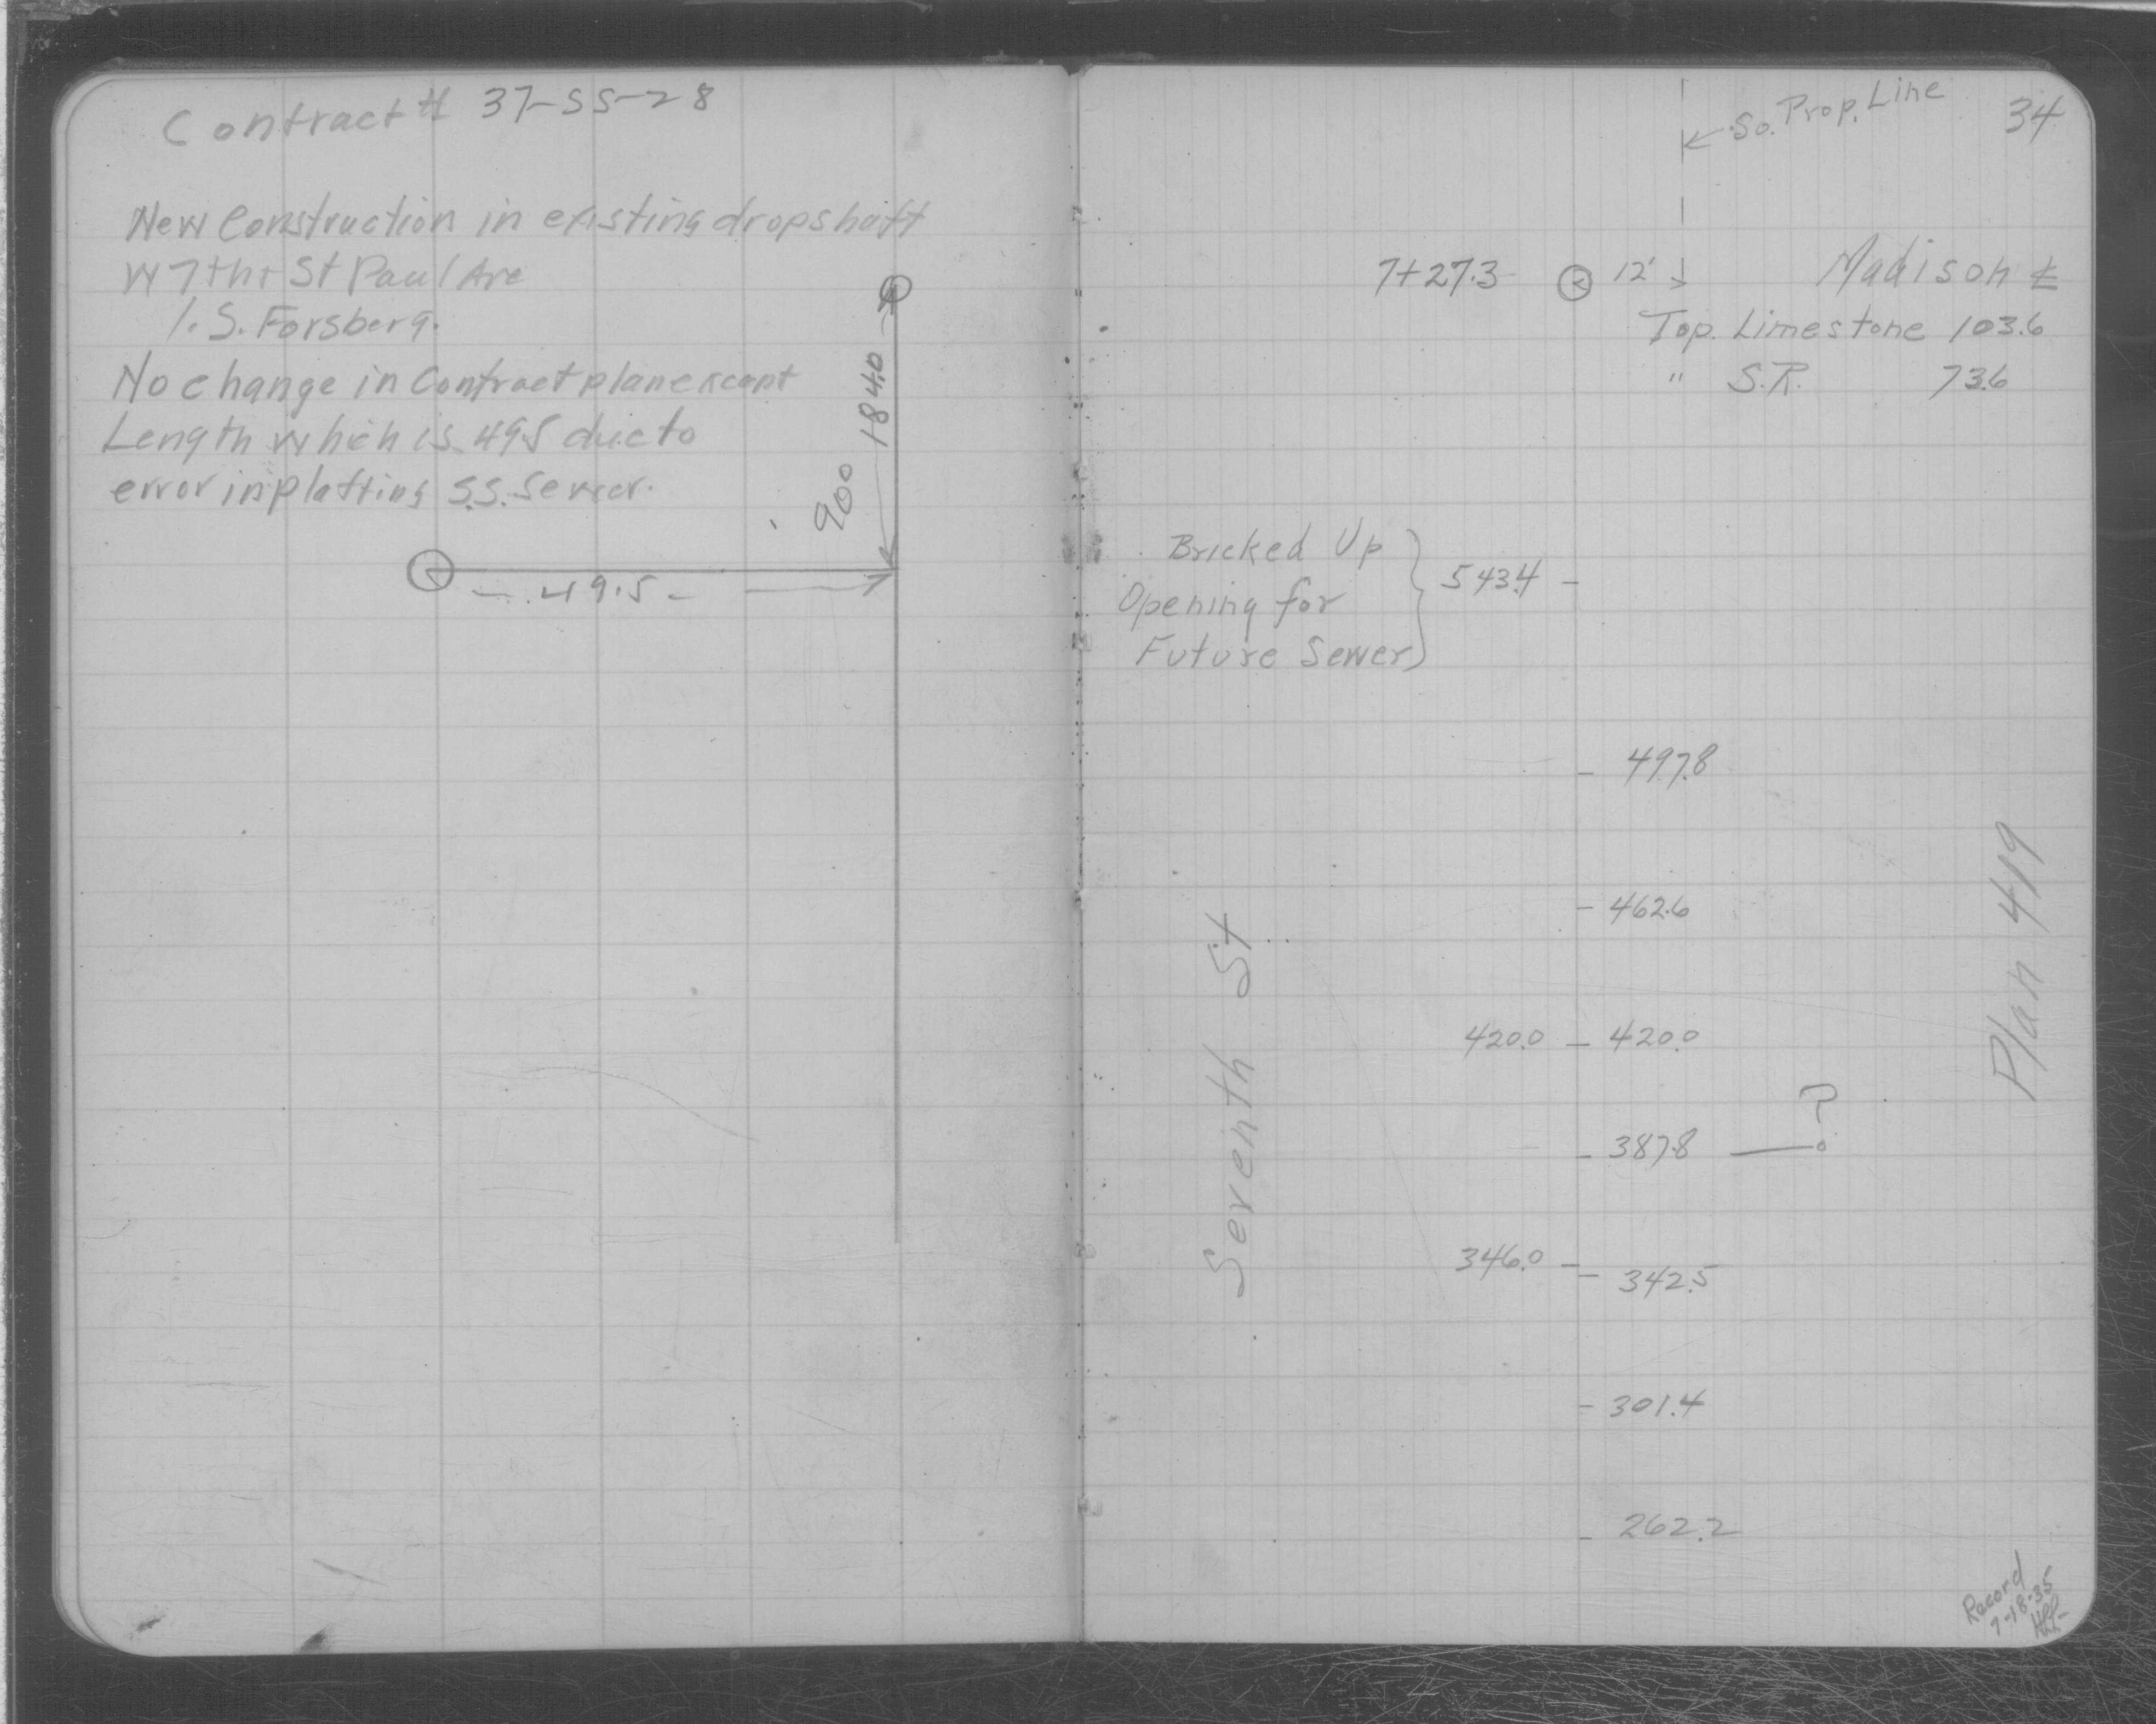 Contract # 37-SS-28
New Construction in existing dropshaft
W 7th + St Paul Ave
I. S. Forsberg.
No change in Contract plan except
Length which is 49.5 due to
error in platting S.S. Sewer.
1840
900
49.5
34
So. Prop. Line
7+27.3 12' Madison
Top. Limestone 103.6
" S.R. 73.6
Bricked Up
Opening for
Future Sewer
543.4
497.8
462.6
420.0 420.0
387.8 ?
346.0
342.5
301.4
262.2
Seventh St
Plan 419
Record
7-18-35